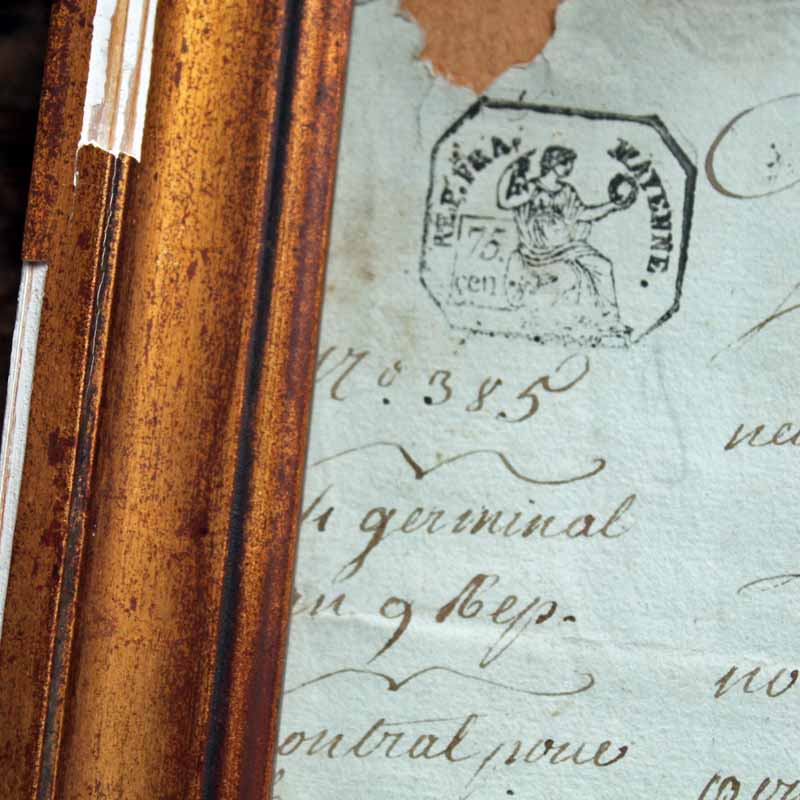 REP. FRA. MAYENNE.
75.
cen
N.º 385
germinal
an 9 Rep.
pour